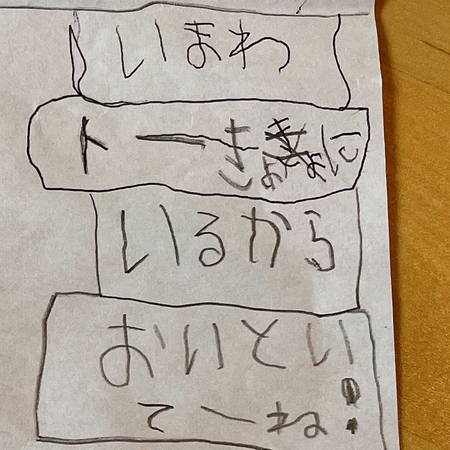 いまわ
トーきょきょに
いるから
おいとい
てーね!